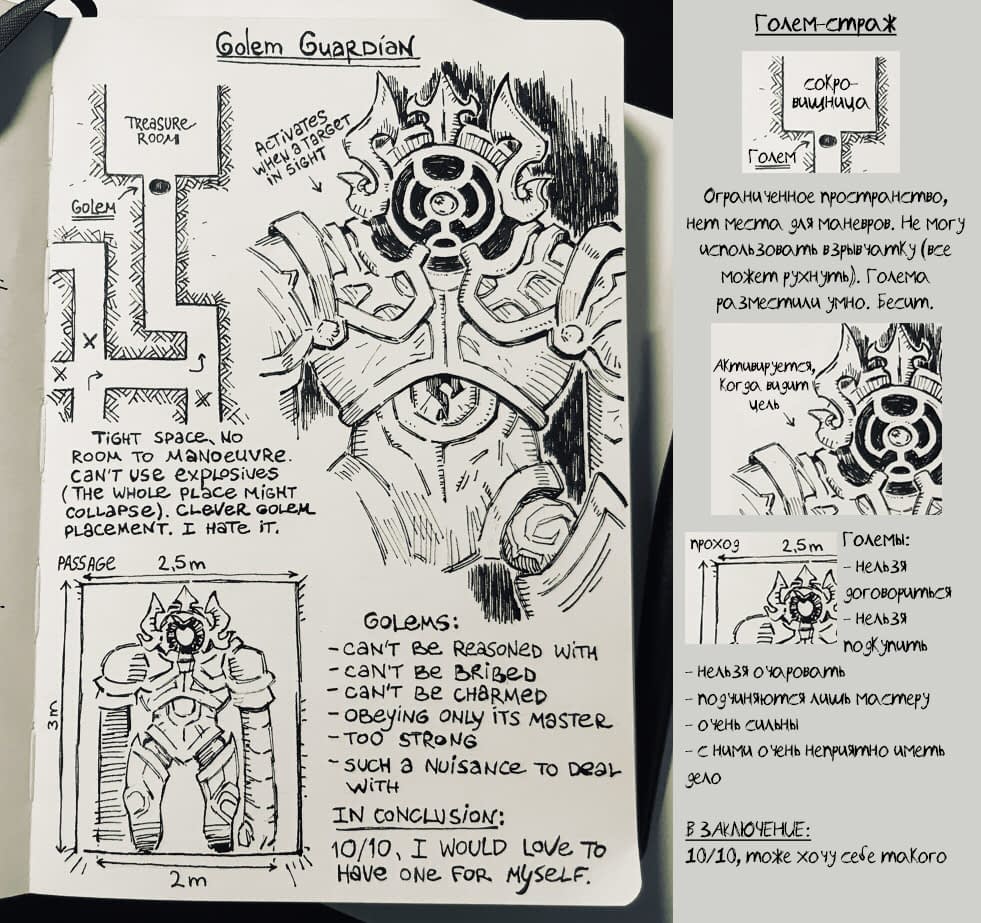 Golem Guardian
TREASURE
ROOM
GOLEM
ACTIVATES
WHEN A TARGET
IN SIGHT
TIGHT SPACE, NO
ROOM TO MANOEUVRE.
CAN'T USE EXPLOSIVES
(THE WHOLE PLACE MIGHT
COLLAPSE). CLEVER GOLEM
PLACEMENT. I HATE IT.
PASSAGE
2,5m
3m
2m
GOLEMS:
- CAN'T BE REASONED WITH
- CAN'T BE BRIBED
- CAN'T BE CHARMED
- OBEYING ONLY ITS MASTER
- TOO STRONG
- SUCH A NUISANCE TO DEAL
WITH
IN CONCLUSION:
10/10, I WOULD LOVE TO
HAVE ONE FOR MYSELF.
Голем-страж
СОКРО-
ВИЩНИЦА
Голем
Ограниченное пространство,
нет места для маневров. Не могу
использовать взрывчатку (все
может рухнуть). Голема
разместили умно. Бесит.
Активируется,
Когда видит
цель
ПРОХОД
2,5m
Големы:
- нельзя
договориться
- нельзя
подкупить
- нельзя очаровать
- подчиняются лишь мастеру
- очень сильны
- с ними очень неприятно иметь
дело
В ЗАКЛЮЧЕНИЕ:
10/10, тоже хочу себе такого